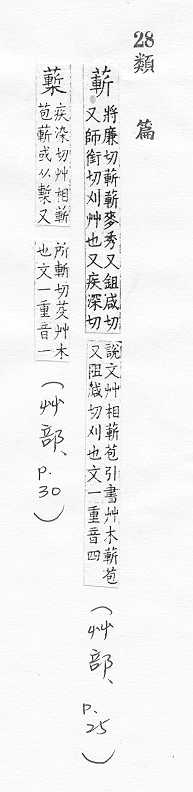 28類 篇
蔪 將廉切蔪蔪麥秀又鉏咸切
又師銜切刈艸也又疾染切
說文艸相蔪苞引書艸木蔪苞
又阻咸切刈也文一重音四
(艸部、p.25)
蔪 疾染切艸相蔪
苞蔪或从槧又
所斬切芟艸木
也文一重音一
(艸部、p.30)